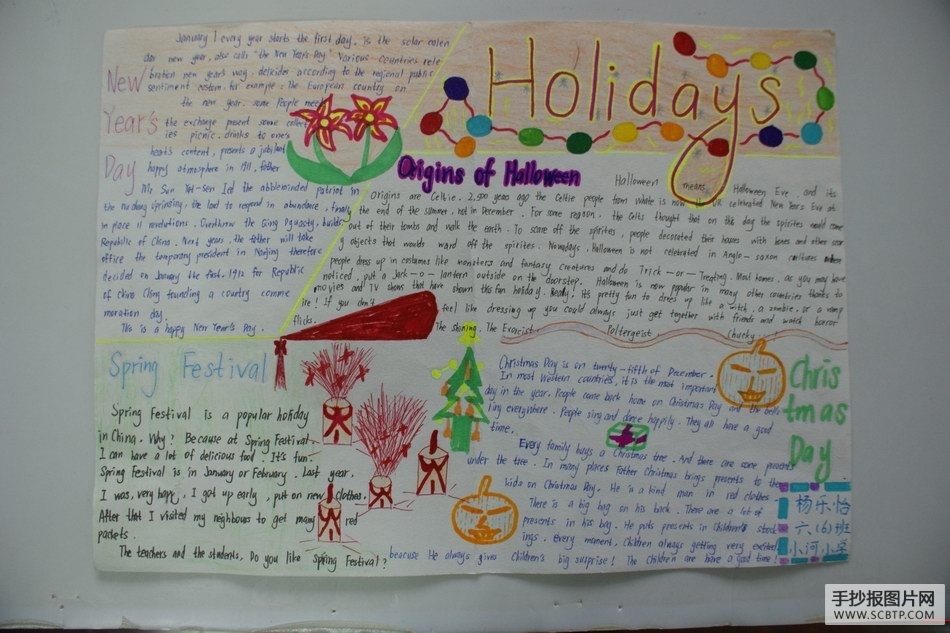 Holidays
New
Year's
Day
January 1 every year starts the first day. is the solar calen
dar new year, also calls "the New Year's Day" Various countries cele
bration new year's way. according to the national public
sentiment custom. for example: the European country on
the new year. some People meet
the exchange present some collect
ies picnic. drinks to one's
heart's content, presents a jubilant
happy atmosphere in 1911, father
Mr. Sun Yat-Sen led the patriot in
the uprising, the lead to respond in abundance, finally
in place revolutions. Overthrew the Qing builds
Republic of China. Next years, the father will take
office the temporary president in Nanjing therefore
decided on January the first. 1912 for Republic
of China founding a country comme
moration day.
This is a happy New Year's Day.
Origins of Halloween
Halloween means Halloween Eve, and its
Origins are Celtic. 2,500 years ago the Celtic people from whate is now the UK celebrated New Years Eve at
the end of the summer, not in December. For some reason, the Celts thought that on this day the spirites would come
out of their tombs and walk the earth. To scare off the spirites, people decorated their houses with bones and other scar
y objects that would ward off the spirites. Nowadays, Halloween is not celebrated in Anglo-saxon cultures where
people dress up in costumes like monsters and fantasy creatures and do Trick-or-Treating. Most homes, as you may have
noticed, put a Jack-o-lantern outside on the doorstep. Halloween is now popular in many other countries thanks to
movies and TV shows that have shown this fun holiday. Really, it's pretty fun to dress up like a witch, a zombie, or a vamp
ire! If you don't feel like dressing up you could always just get together with friends and watch horror
flicks. The shining. The Exorcist. Poltergeist. Chucky.
Spring Festival
Spring Festival is a popular holiday
in China. Why? Because at Spring Festival.
I can have a lot of delicious food. It's fun.
Spring Festival is in January or February. Last year,
I was, very happy, I got up early, put on new clothes.
After that I visited my neighbours to get many red
packets.
The teachers and the students, Do you like Spring Festival?
Chris
tmas
Day
Christmas Day is on twenty-fifth of December.
In most Western countries, it is the most important
day in the year. People came back home on Christmas Day and the bells
ring everywhere. People sing and dance happily. They all have a good
time.
Every family buys a Christmas tree. And there are some presents
under the tree. In many places Father Christmas brings presents to the
kids on Christmas Day. He is a kind man in red clothes.
There is a big bag on his back. There are a lot of
presents in his bag. He puts presents in Children's stock
ings. Every moment, Children always getting very excited
because He always gives Children's big surprise! The Children are have a good time!
杨乐怡
六(6)班
小河小学
手抄报图片网
WWW.SCBTP.COM